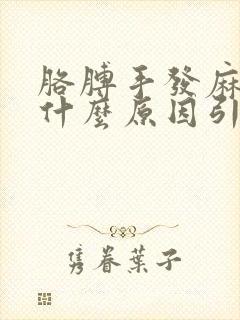 胳膊手發麻
什麼原因引
隽眷葉子